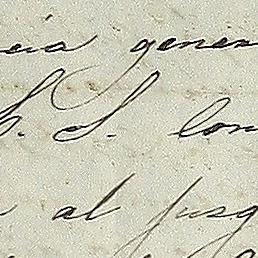 cia gener
S. S. con
al juzg